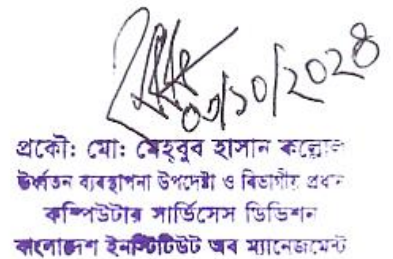 ০৩/১০/২০২৪
প্রকৌ: মো: মেহ্‌বুব হাসান কল্লোল
উর্ধ্বতন ব্যবস্থাপনা উপদেষ্টা ও বিভাগীয় প্রধান
কম্পিউটার সার্ভিসেস ডিভিশন
বাংলাদেশ ইনস্টিটিউট অব ম্যানেজমেন্ট